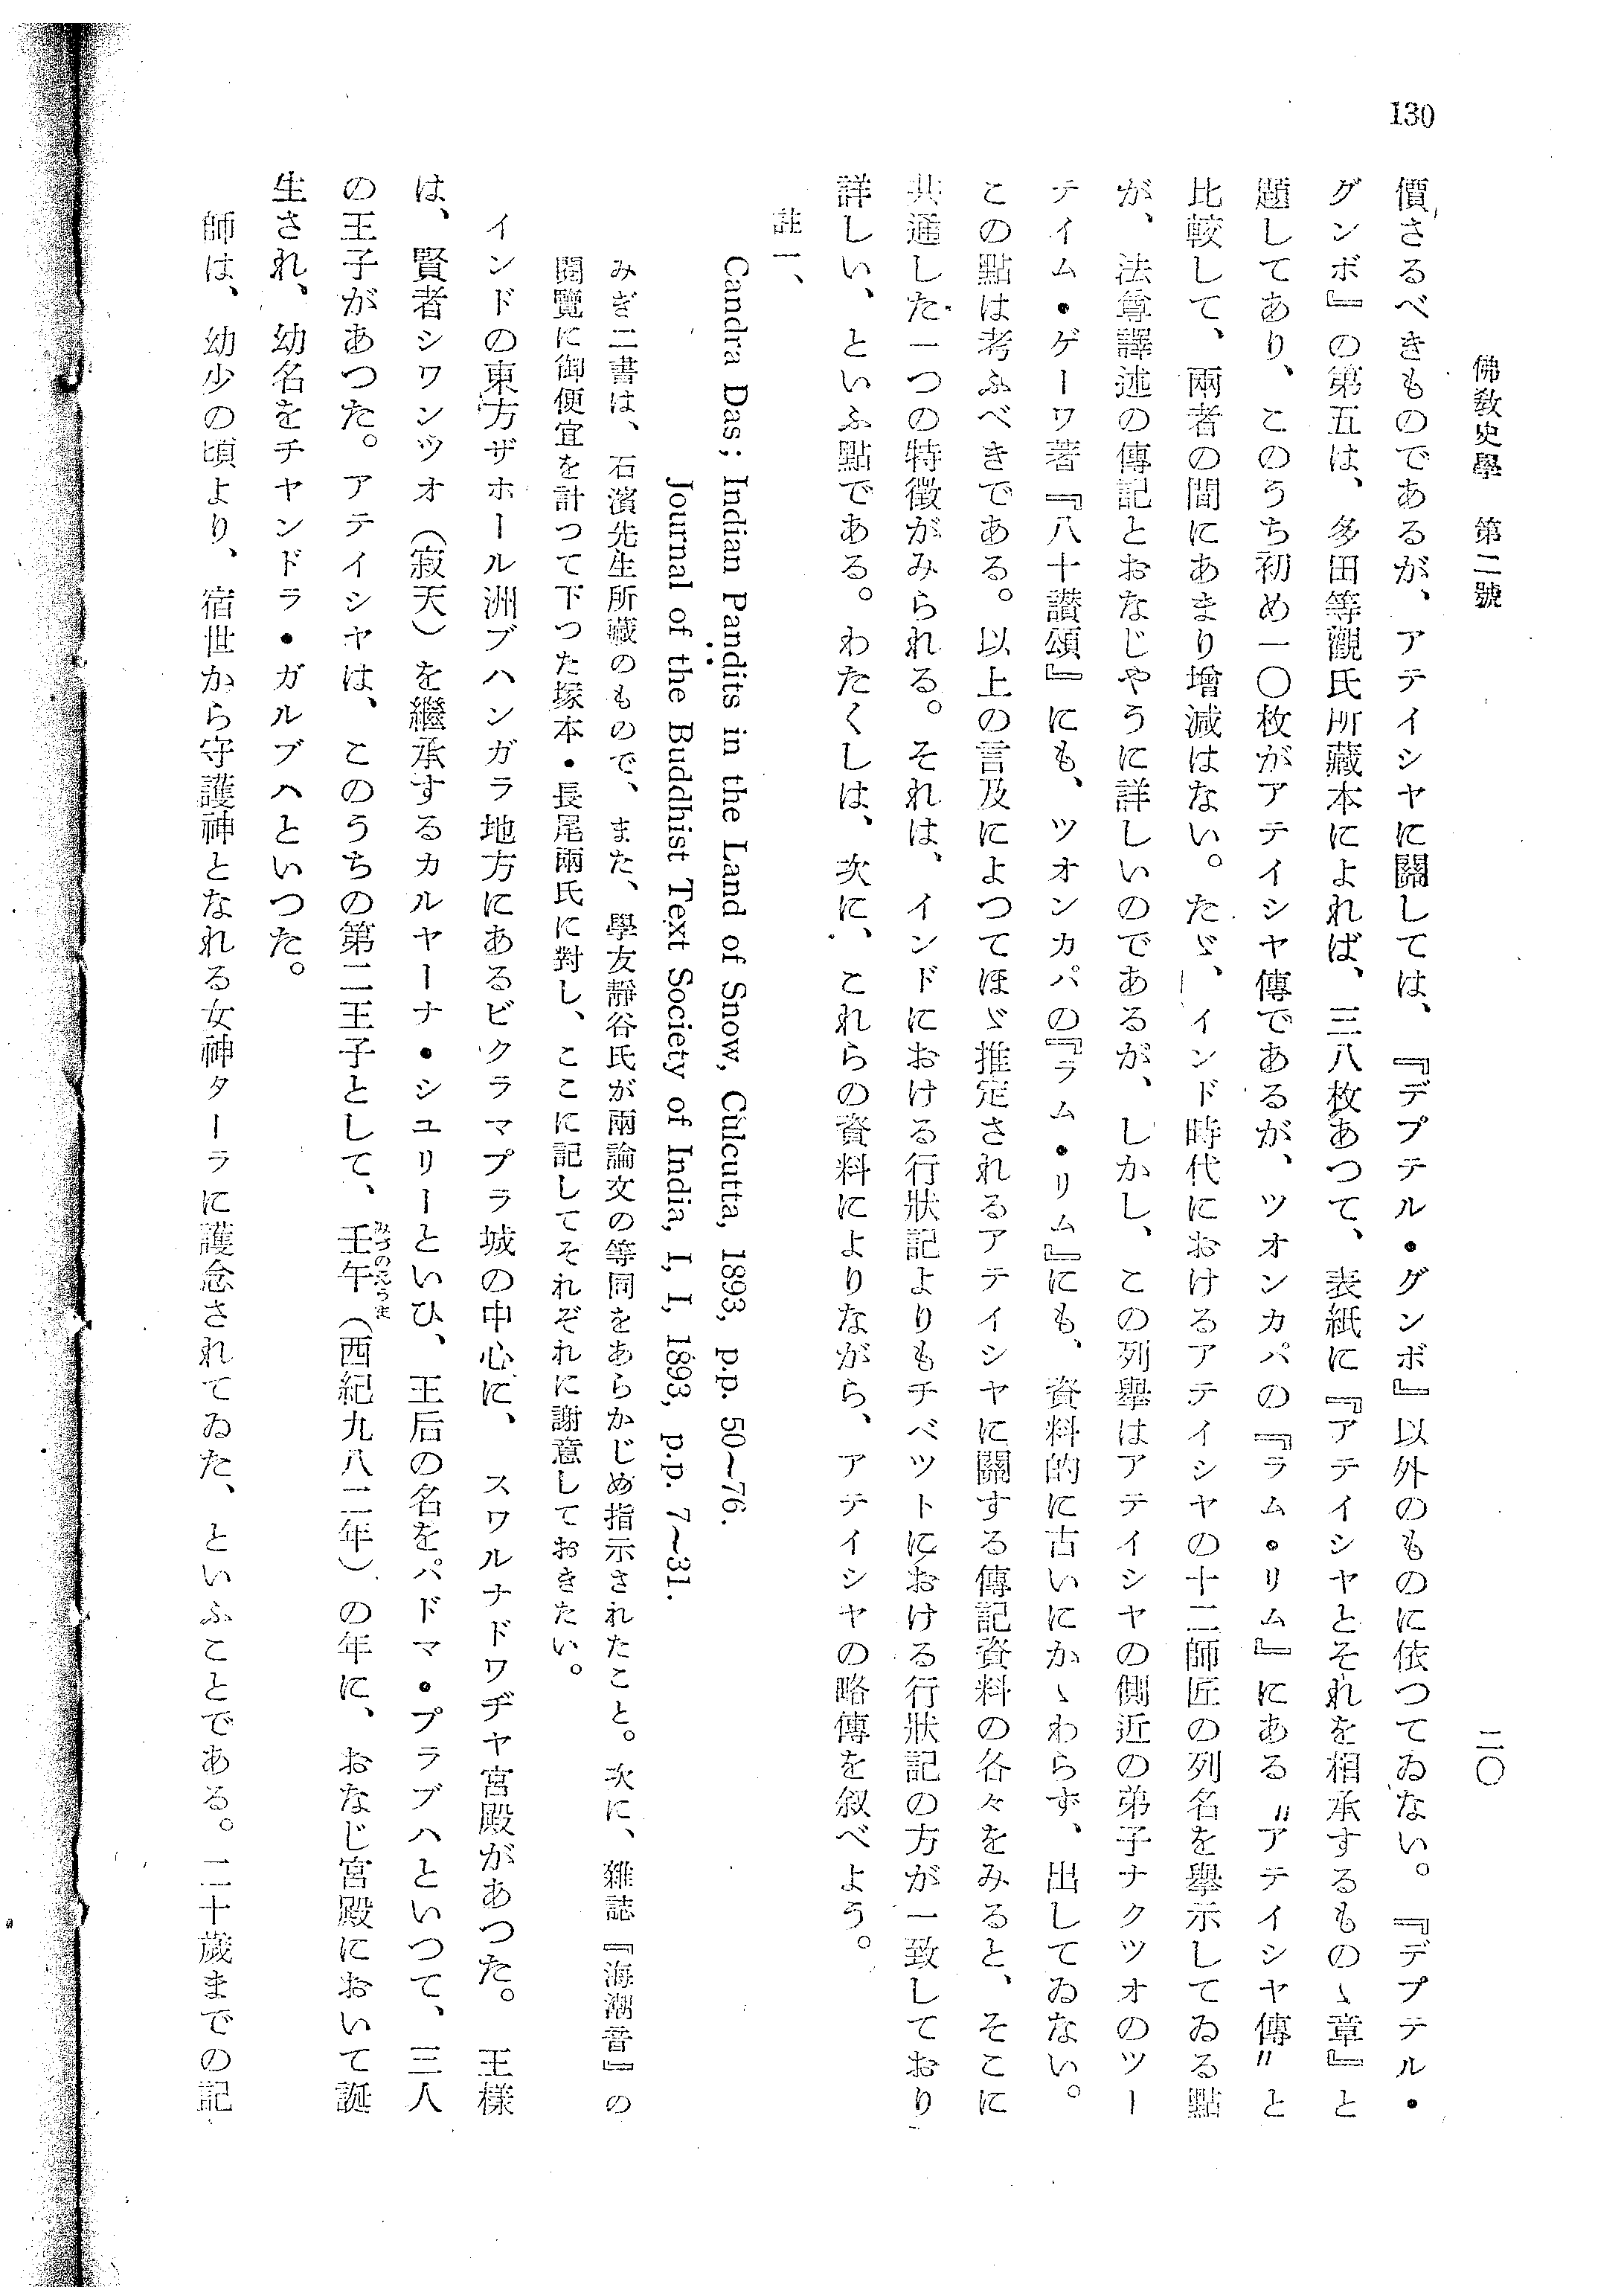 130
佛敎史學　第二號
二〇
價さるべきものであるが、アテイシヤに關しては、『デプテル・グンボ』以外のものに依つてゐない。『デプテル・
グンボ』の第五は、多田等觀氏所藏本によれば、三八枚あつて、表紙に『アテイシヤとそれを相承するものゝ章』と
題してあり、このうち初め一〇枚がアテイシヤ傳であるが、ツオンカパの『ラム・リム』にある〝アテイシヤ傳〟と
比較して、兩者の間にあまり增減はない。たゞ、インド時代におけるアテイシヤの十二師匠の列名を擧示してゐる點
が、法尊譯述の傳記とおなじやうに詳しいのであるが、しかし、この列擧はアテイシヤの側近の弟子ナクツオのツー
テイム・ゲーワ著『八十讃頌』にも、ツオンカパの『ラム・リム』にも、資料的に古いにかゝわらず、出してゐない。
この點は考ふべきである。以上の言及によつてほゞ推定されるアテイシヤに關する傳記資料の各々をみると、そこに
共通した一つの特徴がみられる。それは、インドにおける行狀記よりもチベツトにおける行狀記の方が一致しており
詳しい、といふ點である。わたくしは、次に、これらの資料によりながら、アテイシヤの略傳を叙べよう。
註一、
Candra Das; Indian Pandits in the Land of Snow, Culcutta, 1893, p.p. 50~76.
Journal of the Buddhist Text Society of India, I, I, 1893, p.p. 7~31.
みぎ二書は、石濱先生所藏のもので、また、學友靜谷氏が兩論文の等同をあらかじめ指示されたこと。次に、雜誌『海潮音』の
閲覽に御便宜を計つて下つた塚本・長尾兩氏に對し、ここに記してそれぞれに謝意しておきたい。
インドの東方ザホール洲ブハンガラ地方にあるビクラマプラ城の中心に、スワルナドワヂヤ宮殿があつた。王樣
は、賢者シワンツオ（寂天）を繼承するカルヤーナ・シユリーといひ、王后の名をパドマ・プラブハといつて、三人
の王子があつた。アテイシヤは、このうちの第二王子として、壬午（西紀九八二年）の年に、おなじ宮殿において誕
みづのえうま
生され、幼名をチヤンドラ・ガルブハといつた。
師は、幼少の頃より、宿世から守護神となれる女神ターラに護念されてゐた、といふことである。二十歲までの記